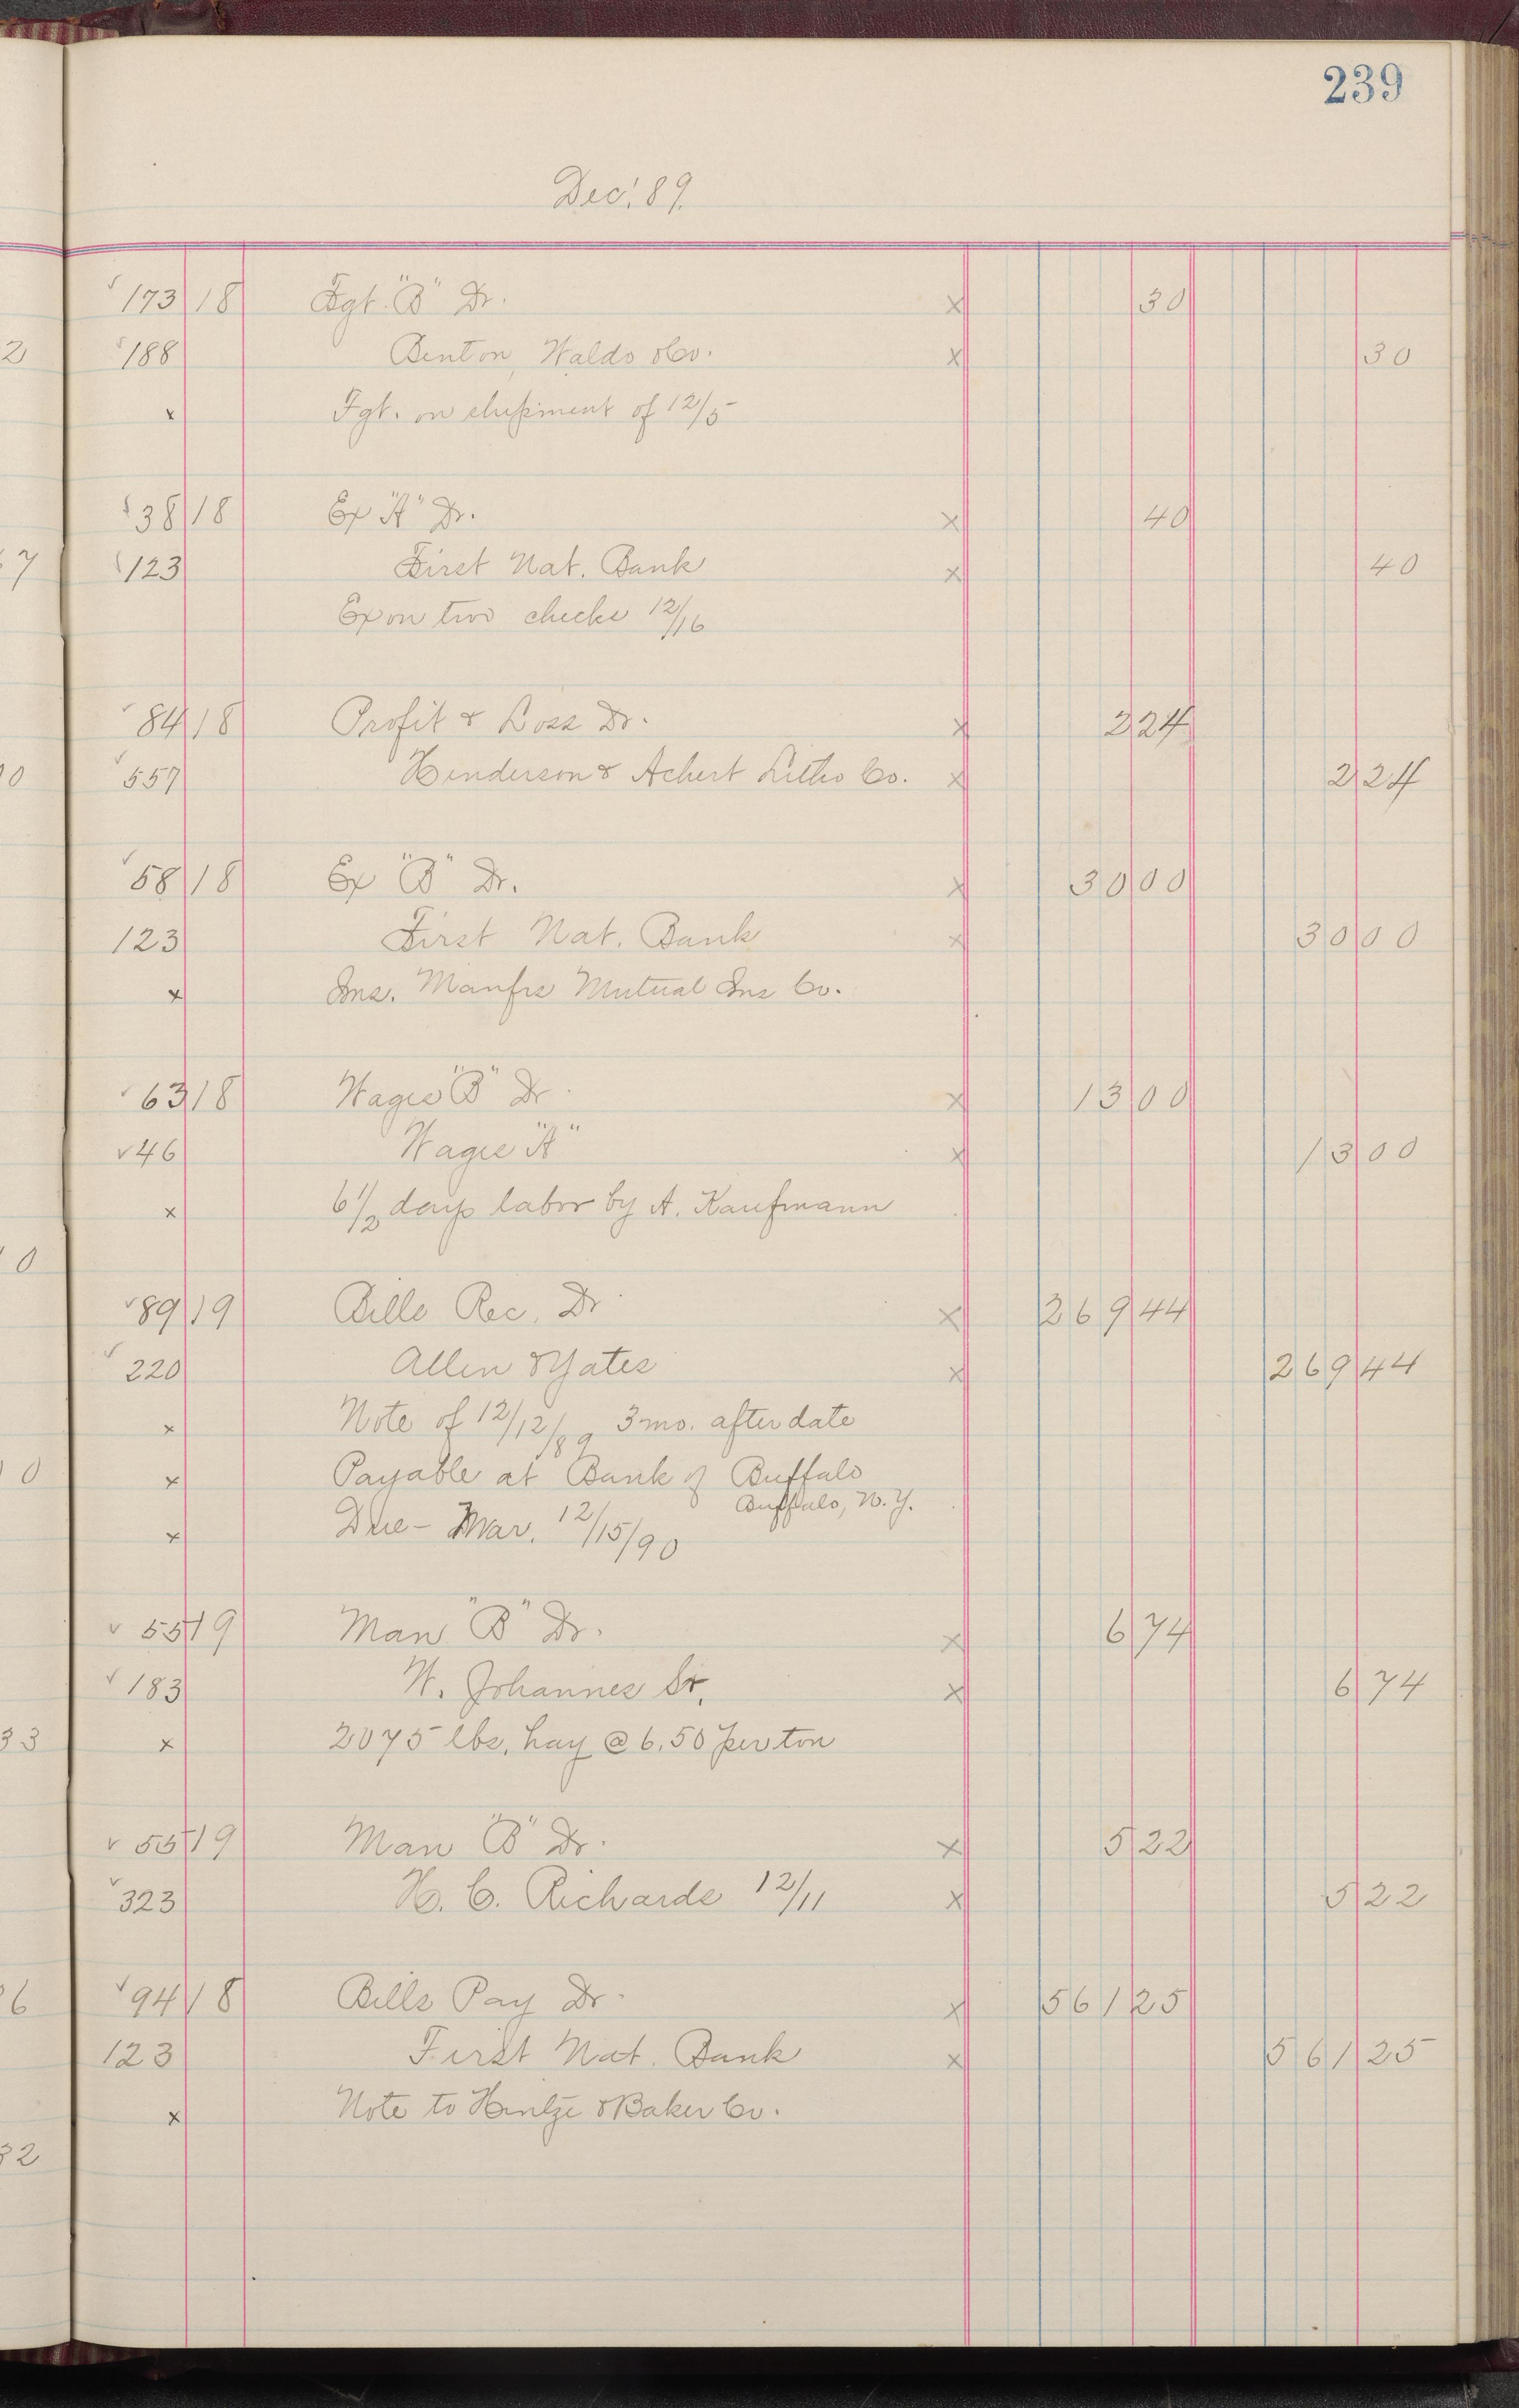 239
Dec. '89.
173 18 Fgt. "B" Dr. x 30
2 188 Benton, Waldo & Co. x 30
x Fgt. on shipment of 12/5
38 18 Ex "A" Dr. x 40
7 123 First Nat. Bank x 40
Ex on two checks 12/16
84 18 Profit & Loss Dr. x 2 24
0 557 Henderson & Achert Litho Co. x 2 24
58 18 Ex "B" Dr. x 30 00
123 First Nat. Bank x 30 00
x Ins. Manfrs Mutual Ins Co.
63 18 Wages "B" Dr x 13 00
46 Wages "A" x 13 00
x 6 1/2 days labor by A. Kaufmann
0
89 19 Bills Rec. Dr x 269 44
220 Allen & Yates x 269 44
x Note of 12/12/89 3 mo. after date
0 x Payable at Bank of Buffalo
Buffalo, N.Y.
x Due - Mar. 12/15/90
55 19 Man "B" Dr. x 6 74
183 W. Johannes Sr. x 6 74
33 x 2075 lbs. hay @ 6.50 per ton
55 19 Man "B" Dr. x 5 22
323 H. C. Richards 12/11 x 5 22
6 94 18 Bills Pay Dr. x 561 25
123 First Nat. Bank x 561 25
x Note to Hintze & Baker Co.
32